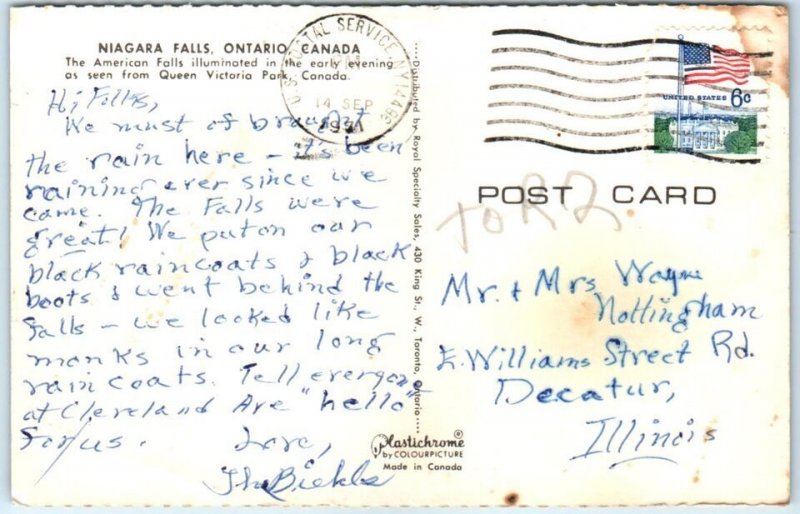 NIAGARA FALLS, ONTARIO, CANADA
The American Falls illuminated in the early evening
as seen from Queen Victoria Park, Canada.
Hi Folks,
We must of braught
the rain here - it's been
raining ever since we
came. The Falls were
great! We put on our
black raincoats & black
boots & went behind the
falls - we looked like
monks in our long
rain coats. Tell everyone
at Cleveland Ave "hello"
for us.
Love,
The
Distributed by Royal Specialty Sales, 430 King St., W., Toronto, Ontario
Plastichrome®
by COLOURPICTURE
Made in Canada
U.S. POSTAL SERVICE NY
PM
14 SEP
1971
UNITED STATES 6c
POST CARD
to R 2
Mr. & Mrs Wayne
Nottingham
E. Williams Street Rd.
Decatur,
Illinois